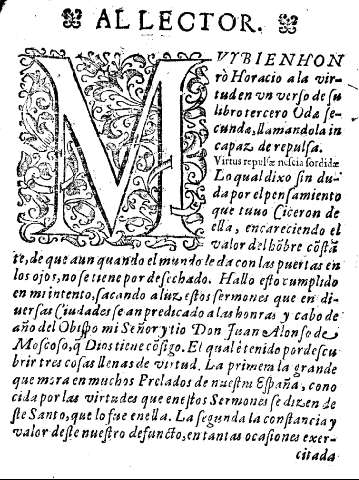 AL LECTOR.
MVY BIEN HON
rò Horacio a la vir-
tud en vn verso de su
libro tercero Oda se-
cunda, llamandola in
capaz de repulsa.
Virtus repulsæ nescia sordidæ
Lo qual dixo sin du-
da por el pensamiento
que tuuo Ciceron de
ella, encareciendo el
valor del hõbre cõstã
te, de que aun quando el mundo le da con las puertas en
los ojos, no se tiene por desechado. Hallo esto cumplido
en mi intento, sacando a luz estos sermones que en di-
uersas Ciudades se an predicado a las honras y cabo de
año del Obispo mi Señor y tio Don Juan Alonso de
Moscoso, q̃ Dios tiene cõsigo. El qual è tenido por descu-
brir tres cosas llenas de virtud. La primera la grande
que mora en muchos Prelados de nuestra España, cono
cida por las virtudes que en estos Sermones se dizen de
ste Santo, que lo fue en ella. La segunda la constancia y
valor deste nuestro defuncto, en tantas ocasiones exer-
citada